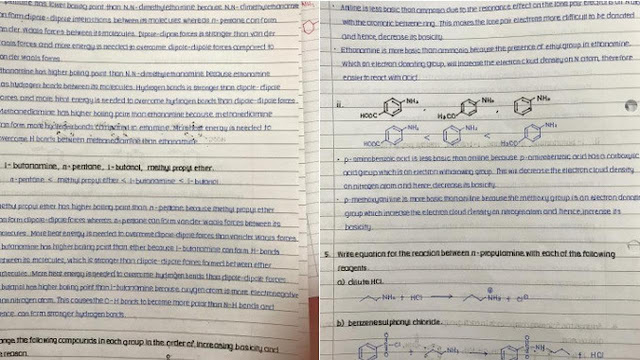 has lower boiling point than N,N-dimethylethanamine because N,N-dimethylethanamine
can form dipole-dipole interactions between its molecules whereas n-pentane can form
van der waals forces between its molecules. Dipole-dipole forces is stronger than van der
waals forces and more energy is needed to overcome dipole-dipole forces compared to
van der waals forces.
ethanamine has higher boiling point than N,N-dimethylmethanamine because ethanamine
has hydrogen bonds between its molecules. Hydrogen bonds is stronger than dipole-dipole
forces and more heat energy is needed to overcome hydrogen bonds than dipole-dipole forces.
Methanediamine has higher boiling point than ethanamine because methanediamine
can form more hydrogen bonds compared to ethanamine. More heat energy is needed to
overcome H bonds between methanediamine than ethanamine.
1-butanamine, n-pentane, 1-butanol, methyl propyl ether.
n-pentane < methyl propyl ether < 1-butanamine < 1-butanol
methyl propyl ether has higher boiling point than n-pentane because methyl propyl ether
can form dipole-dipole forces whereas n-pentane can form van der waals forces between its
molecules. More heat energy is needed to overcome dipole-dipole forces than van der waals forces.
1-butanamine has higher boiling point than ether because 1-butanamine can form H-bonds
between its molecules, which is stronger than dipole-dipole forces formed between ether
molecules. More heat energy is needed to overcome hydrogen bonds than dipole-dipole forces.
1-butanol has higher boiling point than 1-butanamine because oxygen atom is more electronegative
than nitrogen atom. This causes the O-H bonds to become more polar than N-H bonds and
hence, can form stronger hydrogen bonds.
Arrange the following compounds in each group in the order of increasing basicity and
reason.
• Aniline is less basic than ammonia due to the resonance effect on the lone pair electrons
with the aromatic benzene ring. This makes the lone pair electrons more difficult to be donated
and hence decrease its basicity.
• Ethanamine is more basic than ammonia because the presence of ethyl group in ethanamine,
which an electron donating group, will increase the electron cloud density on N atom, therefore
easier to react with acid.
ii. NH₂ , NH₂ , NH₂
HOOC H₃CO
NH₂ < NH₂ < NH₂
HOOC H₃CO
• p-aminobenzoic acid is less basic than aniline because p-aminobenzoic acid has a carboxylic
acid group which is an electron withdrawing group. This will decrease the electron cloud density
on nitrogen atom and hence, decrease its basicity.
• p-methoxyaniline is more basic than aniline because the methoxy group is an electron donating
group which increase the electron cloud density on nitrogen atom and hence, increase its
basicity.
5. Write equation for the reaction between n-propylamine with each of the following
reagents.
a) dilute HCl.
NH₂ + HCl → NH₃ Cl
b) benzenesulphonyl chloride.
S-Cl + NH₂ → S-NH + HCl